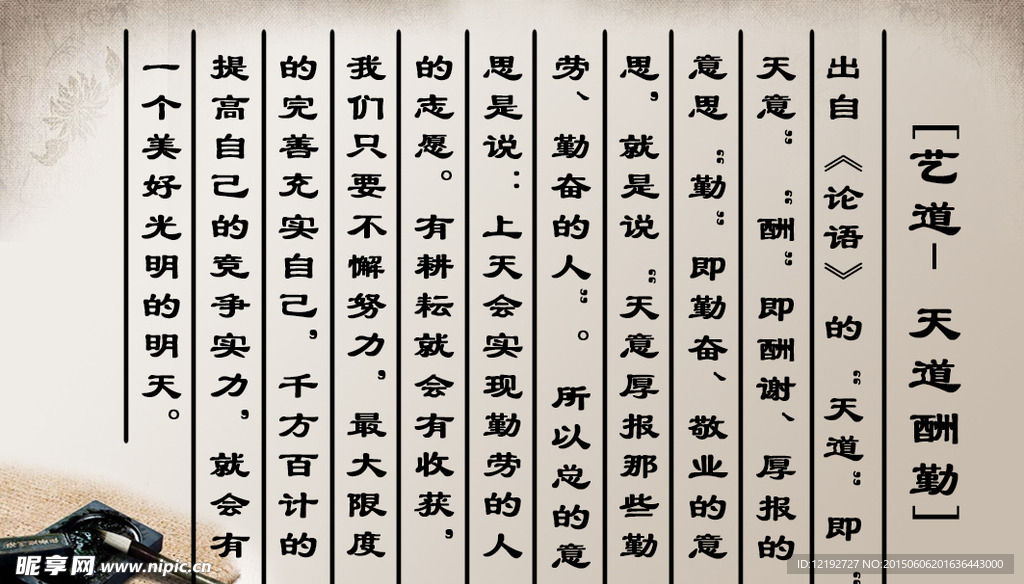 [艺道— 天道酬勤]
出自《论语》的“天道”即“
天意”“酬”即酬谢、厚报的
意思“勤”即勤奋、敬业的意
思，就是说“天意厚报那些勤
劳、勤奋的人”。所以总的意
思是说：上天会实现勤劳的人
的志愿。有耕耘就会有收获，
我们只要不懈努力，最大限度
的完善充实自己，千方百计的
提高自己的竞争实力，就会有
一个美好光明的明天。
昵享网 www.nipic.cn
ID:12192727 NO:20150606201636443000